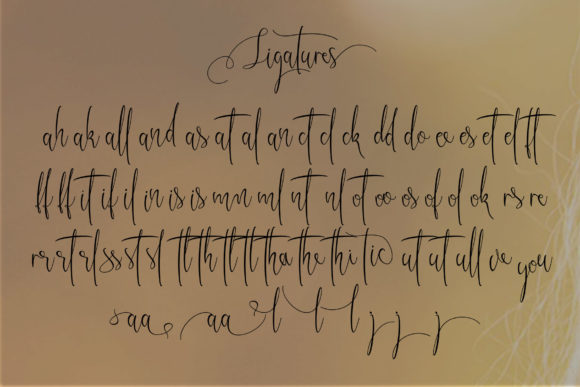 Ligatures
ah ak all and as at al an ct cl ck dd do ee es et el ft
ff ff it if il in is is mn ml nt nl ot oo os of ol ok rs re
rr rt rl ss st sl tl th tl tt tha the thi tic ut ut ull ve you
aa aa l l l j j j